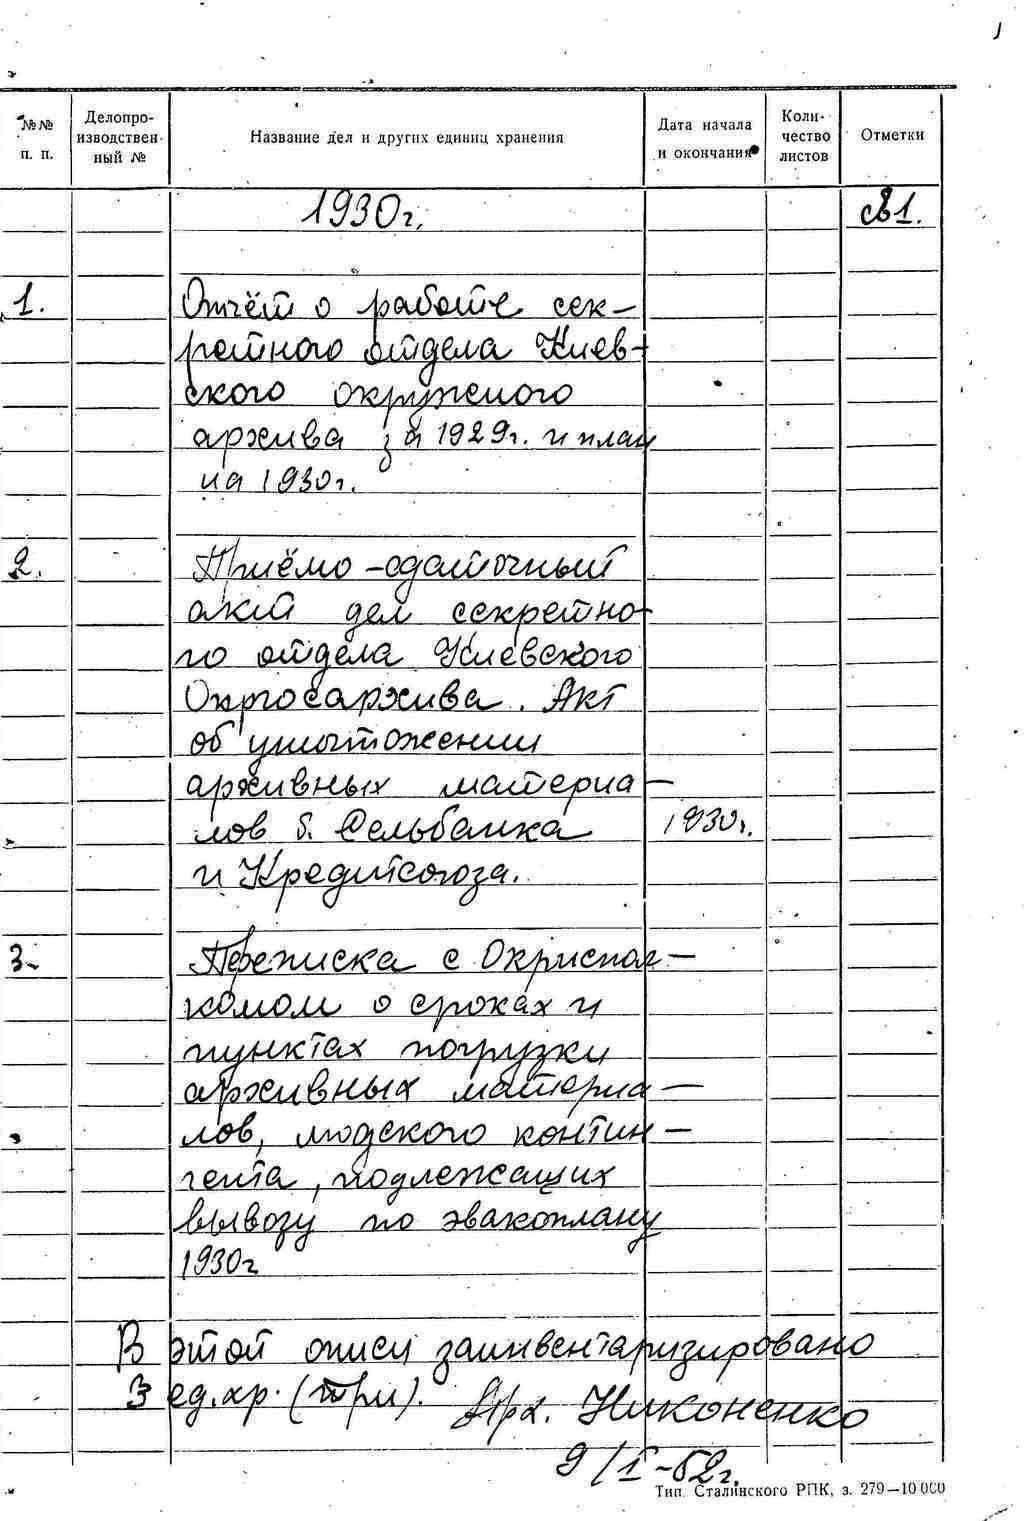 №№ п. п. Делопроизводственный № Название дел и других единиц хранения Дата начала и окончания Количество листов Отметки
1930г. св1.
1. Отчёт о работе сек-
ретного отдела Киев-
ского окружного
архива за 1929г. и план
на 1930г.
2. Приёмо-сдаточный
акт дел секретно-
го отдела Киевского
Окргосархива. Акт
об уничтожении
архивных материа-
лов б. Сельбанка 1930г.
и Кредитсоюза.
3. Переписка с Окриспол-
комом о сроках и
пунктах погрузки
архивных материа-
лов, людского контин-
гента, подлежащих
вывозу по эвакоплану
1930г
В этой описи заинвентаризировано
3 ед.хр. (три). Арх. Никоненко
9/I-52г.
Тип. Сталинского РПК, з. 279—10 000